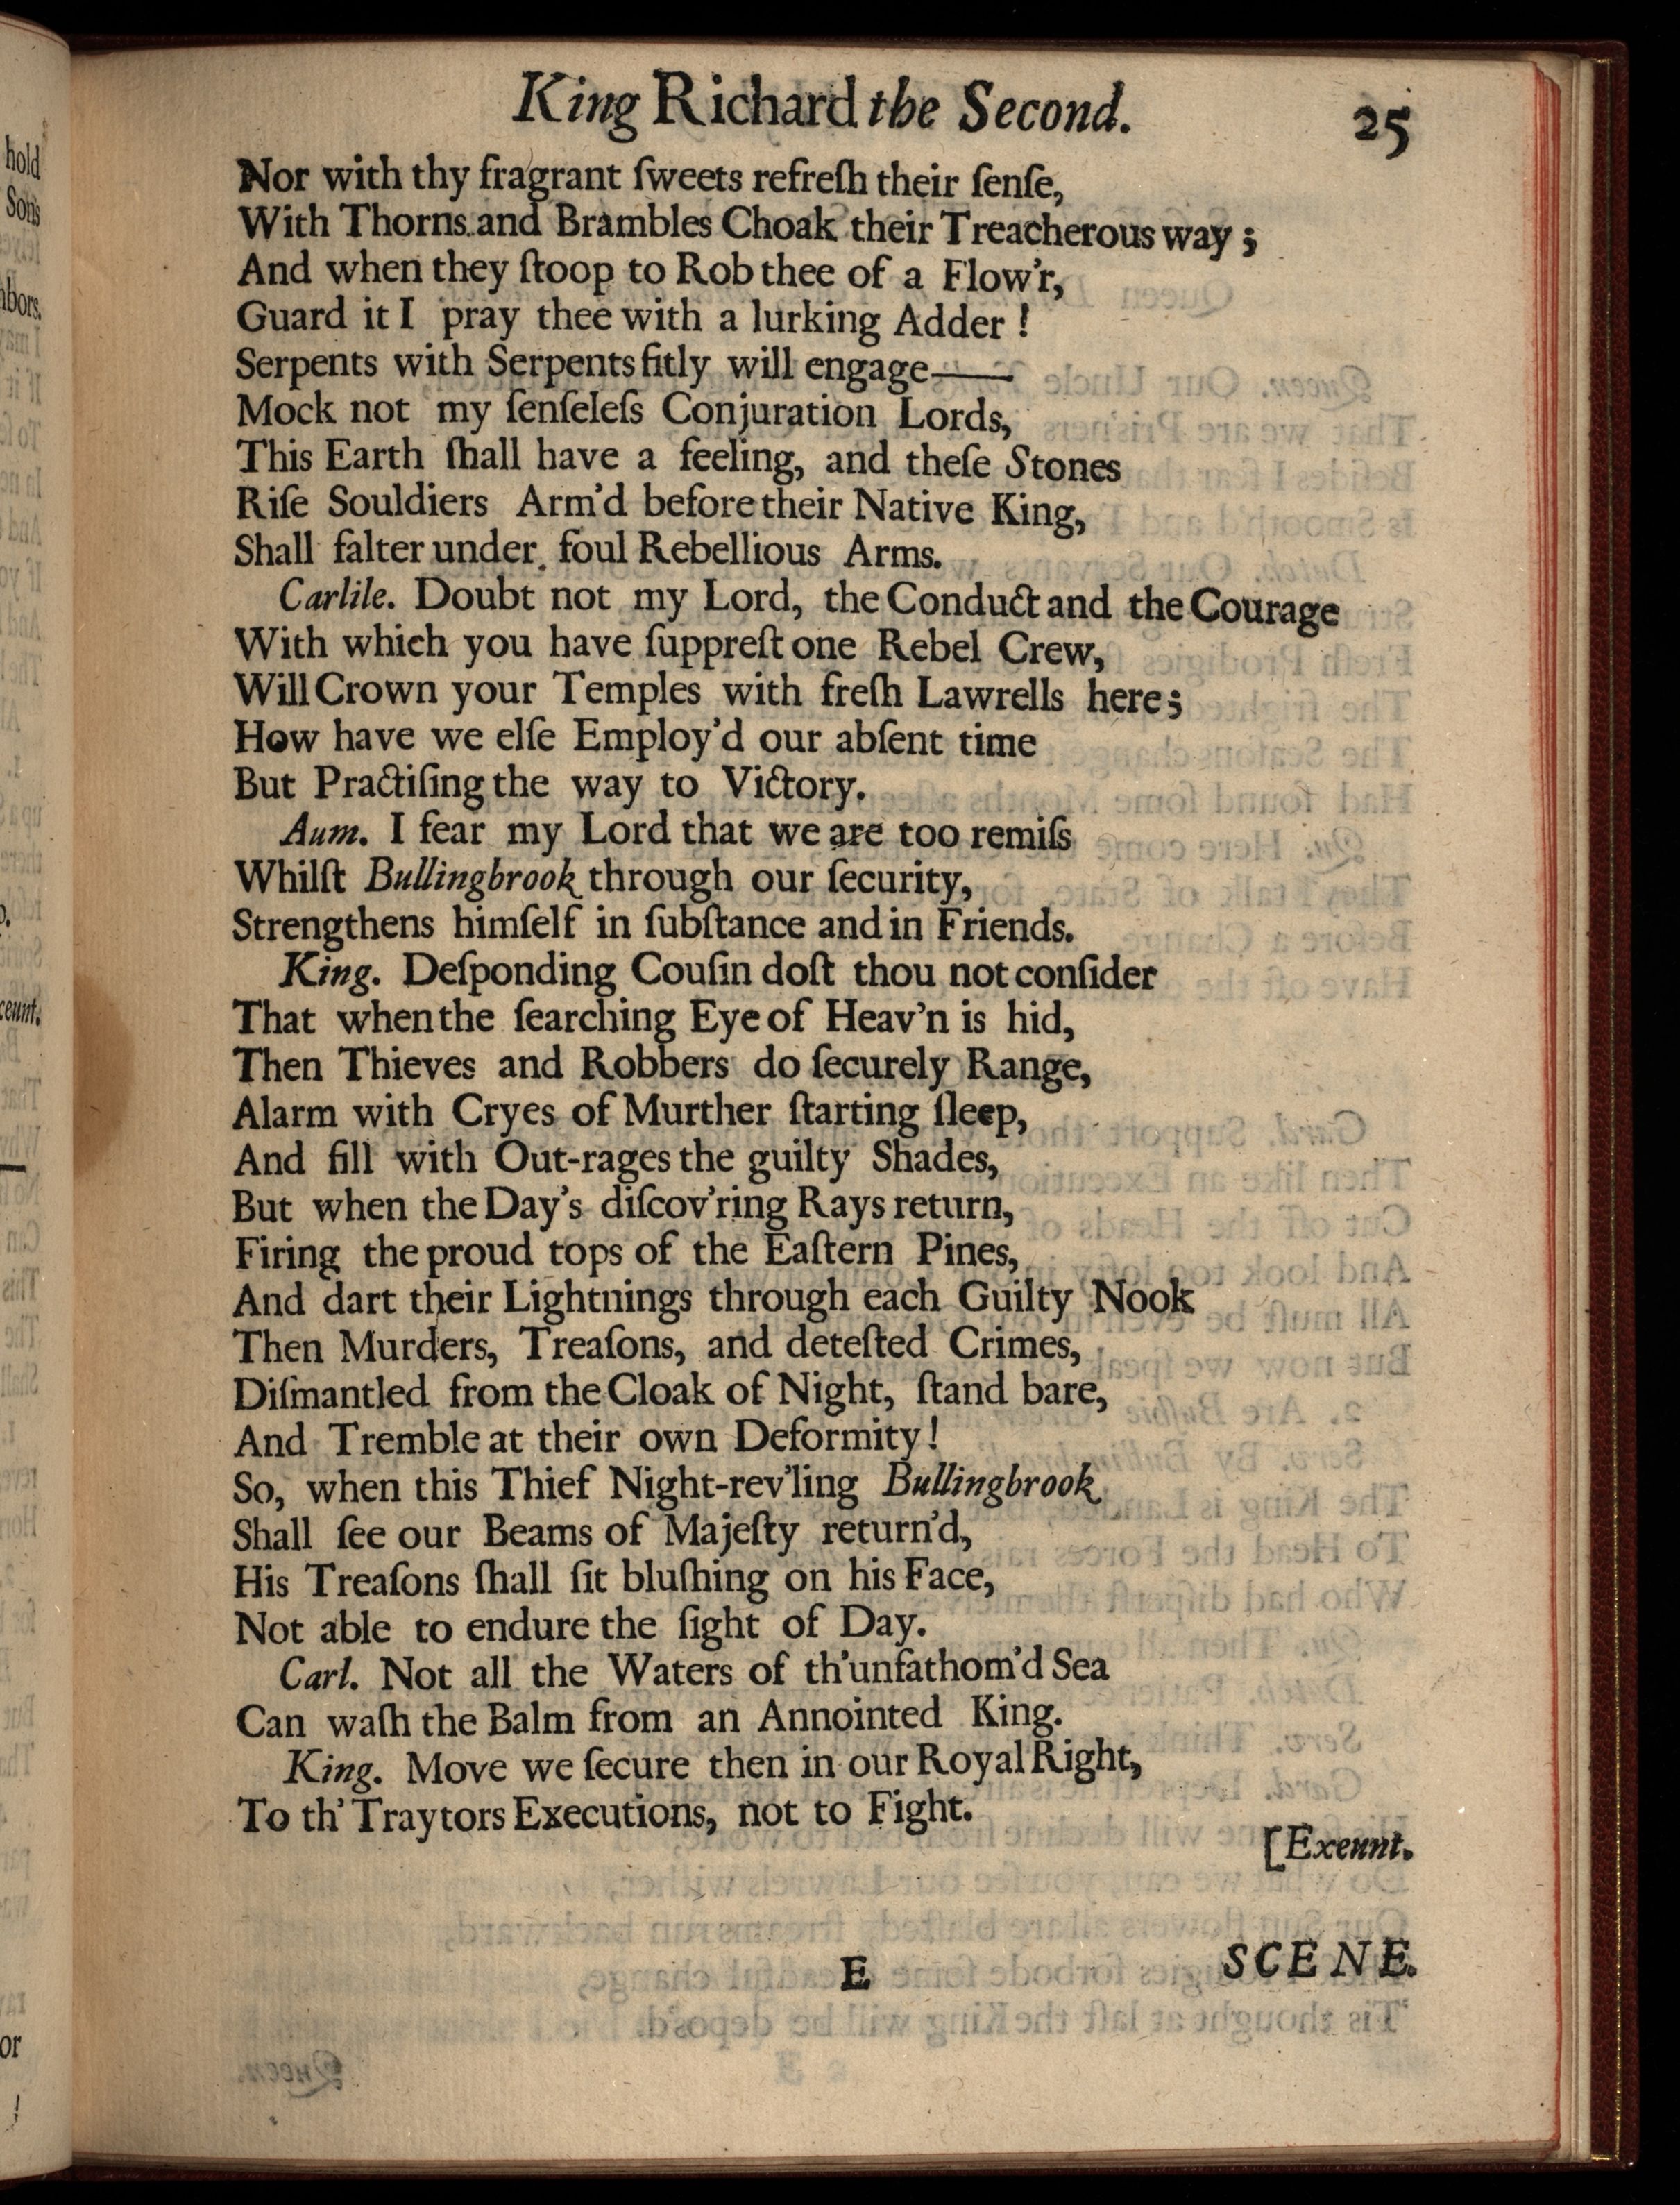 King Richard the Second. 25
Nor with thy fragrant ſweets refreſh their ſenſe,
With Thorns and Brambles Choak their Treacherous way;
And when they ſtoop to Rob thee of a Flow'r,
Guard it I pray thee with a lurking Adder!
Serpents with Serpents fitly will engage——
Mock not my ſenſeleſs Conjuration Lords,
This Earth ſhall have a feeling, and theſe Stones
Riſe Souldiers Arm'd before their Native King,
Shall falter under foul Rebellious Arms.
Carlile. Doubt not my Lord, the Conduct and the Courage
With which you have ſuppreſt one Rebel Crew,
Will Crown your Temples with freſh Lawrells here;
How have we elſe Employ'd our abſent time
But Practiſing the way to Victory.
Aum. I fear my Lord that we are too remiſs
Whilſt Bullingbrook through our ſecurity,
Strengthens himſelf in ſubſtance and in Friends.
King. Deſponding Couſin doſt thou not conſider
That when the ſearching Eye of Heav'n is hid,
Then Thieves and Robbers do ſecurely Range,
Alarm with Cryes of Murther ſtarting ſleep,
And fill with Out-rages the guilty Shades,
But when the Day's diſcov'ring Rays return,
Firing the proud tops of the Eaſtern Pines,
And dart their Lightnings through each Guilty Nook
Then Murders, Treaſons, and deteſted Crimes,
Diſmantled from the Cloak of Night, ſtand bare,
And Tremble at their own Deformity!
So, when this Thief Night-rev'ling Bullingbrook
Shall ſee our Beams of Majeſty return'd,
His Treaſons ſhall ſit bluſhing on his Face,
Not able to endure the ſight of Day.
Carl. Not all the Waters of th'unfathom'd Sea
Can waſh the Balm from an Annointed King.
King. Move we ſecure then in our Royal Right,
To th' Traytors Executions, not to Fight.
[Exeunt.
E SCENE.
hold
Sons
or